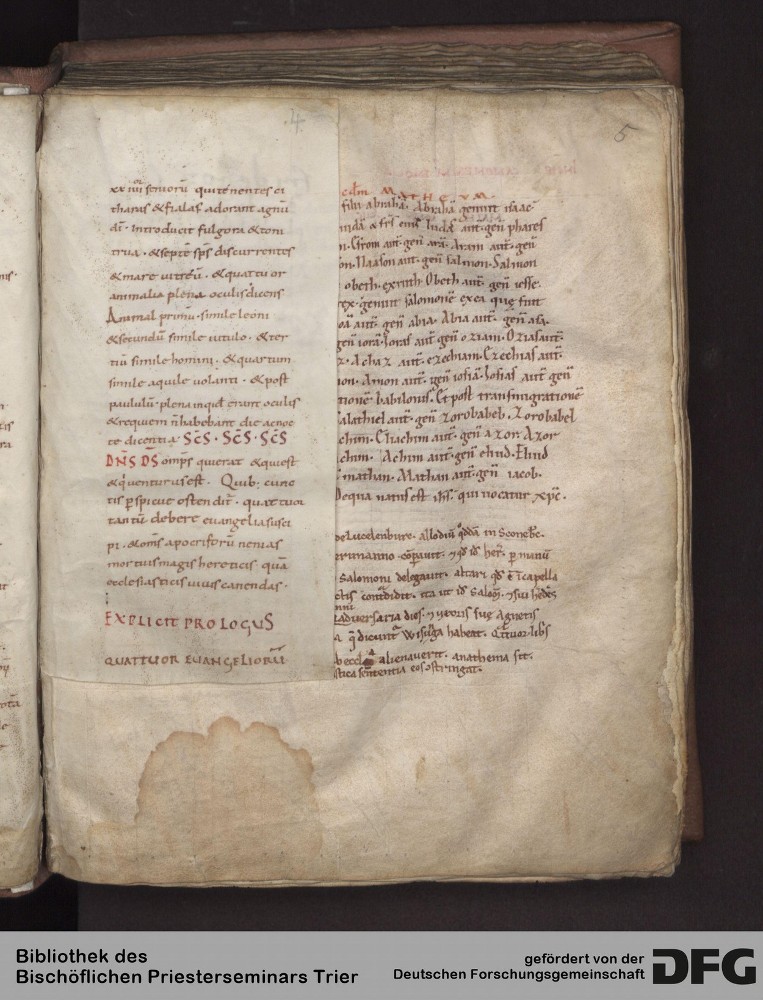 4
xx iiiior senioru qui tenentes ci
tharas & fialas adorant agnu
di · Introducit fulgora & toni
trua · & septe sps discurrentes
& mare uitreu · & quattuor
animalia plena oculis dicens
Animal primu · simile leoni
& secundu simile uitulo · & ter
tiu simile homini · & quartum
simile aquile uolanti · & post
paululu · plena inquit erant oculis
& requiem n habebant die ac noc
te dicentia · SC̄S · SC̄S · SC̄S
DN̄S DS̄ omps qui erat & qui est
& q uenturus est · Quib; cunc
tis pspicue ostendit · quattuor
tantu debere euangelia susci
pi · & oms apocrifru nenias
mortuis magis hereticis qua
ecclesiasticis uiuis canendas ·
EXPLICIT PROLOGUS
QUATTUOR EUANGELIORU
5
cdm MATHEVM.
filii abraha · Abraha genuit isaac
iuda & frs eius Iudas aut · gen phares
n · Esrom aut · gen ara · Aram aut · gen
on · Naason aut · gen salmon · Salmon
obeth · ex ruth Obeth aut · gen iesse ·
rex · genuit salomone ex ea que fuit
oa aut · gen abia · Abia aut · gen asa ·
gen iora · Ioras aut gen oziam · Ozias aut
z · Achaz aut · ezechiam · Ezechias aut ·
ion · Amon aut · gen iosia · Iosias aut gen
tione babilonis · Et post transmigratione
alathiel aut · gen zorobabel · Zorobabel
chim · Eliachim aut · gen azor · Azor
chim · Achim aut · gen eliud · Eliud
mathan · Mathan aut · gen iacob ·
De qua natus est ihs · qui uocatur xpc ·
de Lucelenburc · allodiu qdda in
Salomoni delegauit · altari qd e i capella
aduersaria dies · uxoris sue Agnetis
q dicunt habeat ·
alienauerit · anathema sit ·
sententia eos ostringat ·
Bibliothek des
Bischöflichen Priesterseminars Trier
gefördert von der
Deutschen Forschungsgemeinschaft
DFG